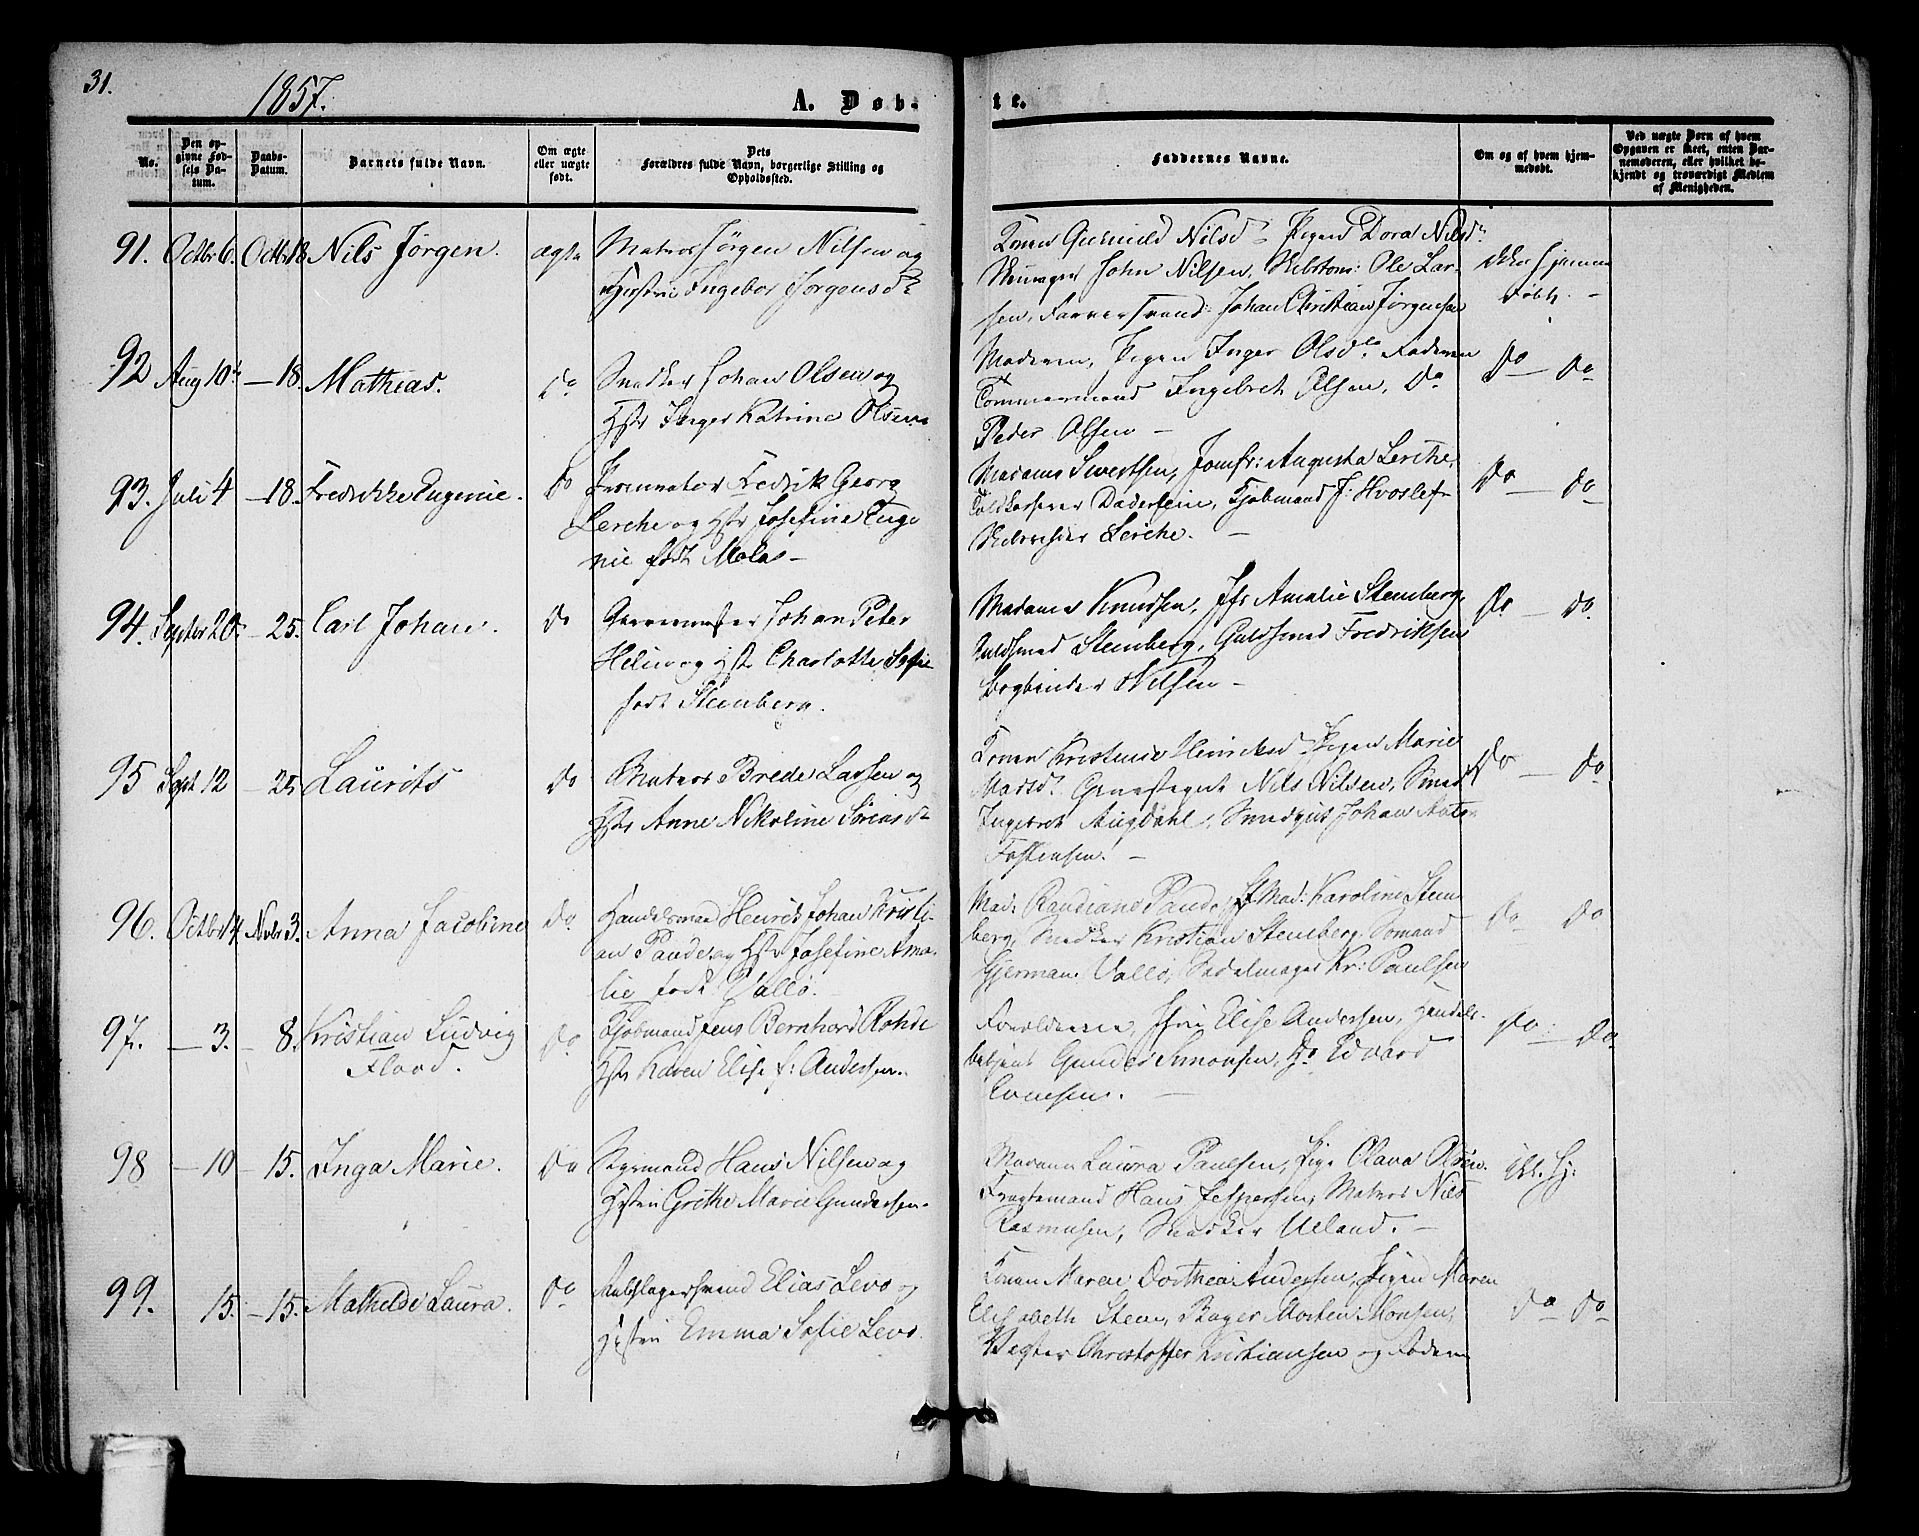 31.
1857.
A. Døb-
te.
No.
Den op-
givne Fød-
sels Da-
tum.
Daabs-
Datum.
Barnets fulde Navn.
Om ægte
eller uægte
født.
Dets
Forældres fulde Navn, borgerlige Stilling og
Opholdssted.
Faddernes Navne.
Om og af hvem hjem-
medøbt.
Ved uægte Børn af hvem
Opgaven er skeet, enten Bar-
nemoderen, eller hvilket be-
kjendt og troværdigt Medlem
af Menigheden.
91. Octbr 6. Octbr 18 Nils Jørgen. ægte
Matros Jørgen Nilsen og
Hustru Ingebor Jørgensd
Konen Gunnild Nilsd Pigen Dora Nilsd
John Nilsen, Ole Lar-
sen, Farversvend Johan Christian Jørgensen
ikke hjemme
døbt. -
92 Aug 10 - 18. Mathias. Do
Snedker Johan Olsen og
Hstr Inger Katrine Olsen
Moderen, Pigen Inger Olsd Faderen
Tømmermand Ingebret Olsen, Do
Peder Olsen -
Do - Do
93. Juli 4 - 18. Fredrikke Eugenie. Do
Fredrik Georg
Lerche og Hstr Josefine Euge
nie født Moles -
Madame Sivertsen, Jomfr: Augusta Lerche,
Toldkasserer Kjøbmand J: Hvoslef
Lerche. -
Do - Do
94. Septbr 20 - 25. Carl Johan. Do
Johan Peter
og Hst Charlotte Sofie
født Stenberg.
Madame Knudsen, Jfr Amalie Stenberg,
Guldsmed Stenberg, Guldsmed Fredriksen
Bogbinder Nilsen -
Do - Do
95 Sept 12 - 25 Laurits Do
Matros Brede Larsen og
Hstr Anne Nikoline Sørensd
Konen Kristense Henriksd Pigen Marie
Marsd. Nils Nilsen, Smed
Ingebret Augdahl, Johan Anto
Tostensen! -
Do - Do
96. Octbr 14. Novbr 3. Anna Jacobine Do.
Handelsmand Henrik Johan Kristi-
an Pande og Hstr Josefine Ama-
lie født Vallø.
Mad: Randiane Pande, Mad: Karoline Sten
berg, Snedker Kristian Stenberg, Sømand
Gjerman Vallø, Sadelmager Kr: Paulsen
Do Do
97. - 3. - 8. Kristian Ludvig
Flood. Do
Kjøbmand Jens Bernhard Rohde
Hstr Karen Elise f: Andersen.
Forældrene, Elise Andersen, Handels-
betjent Gunder Simonsen, Do Edvard
Evensen. -
Do: Do
98 - 10 - 15. Inga Marie. Do
Styrmand Hans Nilsen og
Hustru Grethe Marie Gundersen.
Madame Laura Paulsen, Pige Olava Olsen.
Fragtemand Hans Jespersen, Matros Nils
Rasmusen, Snedker Ueland. -
ikk. Hj:
99. 15. - 15. Mathilde Laura. Do
Elias Levo og
Hustru Emma Sofie Levo.
Konen Maren Dorthea Andersen, Pigen Maren
Elisabeth Steen, Bager Morten Monsen,
Vægter Christoffer Kristiansen og Faderen
Do Do